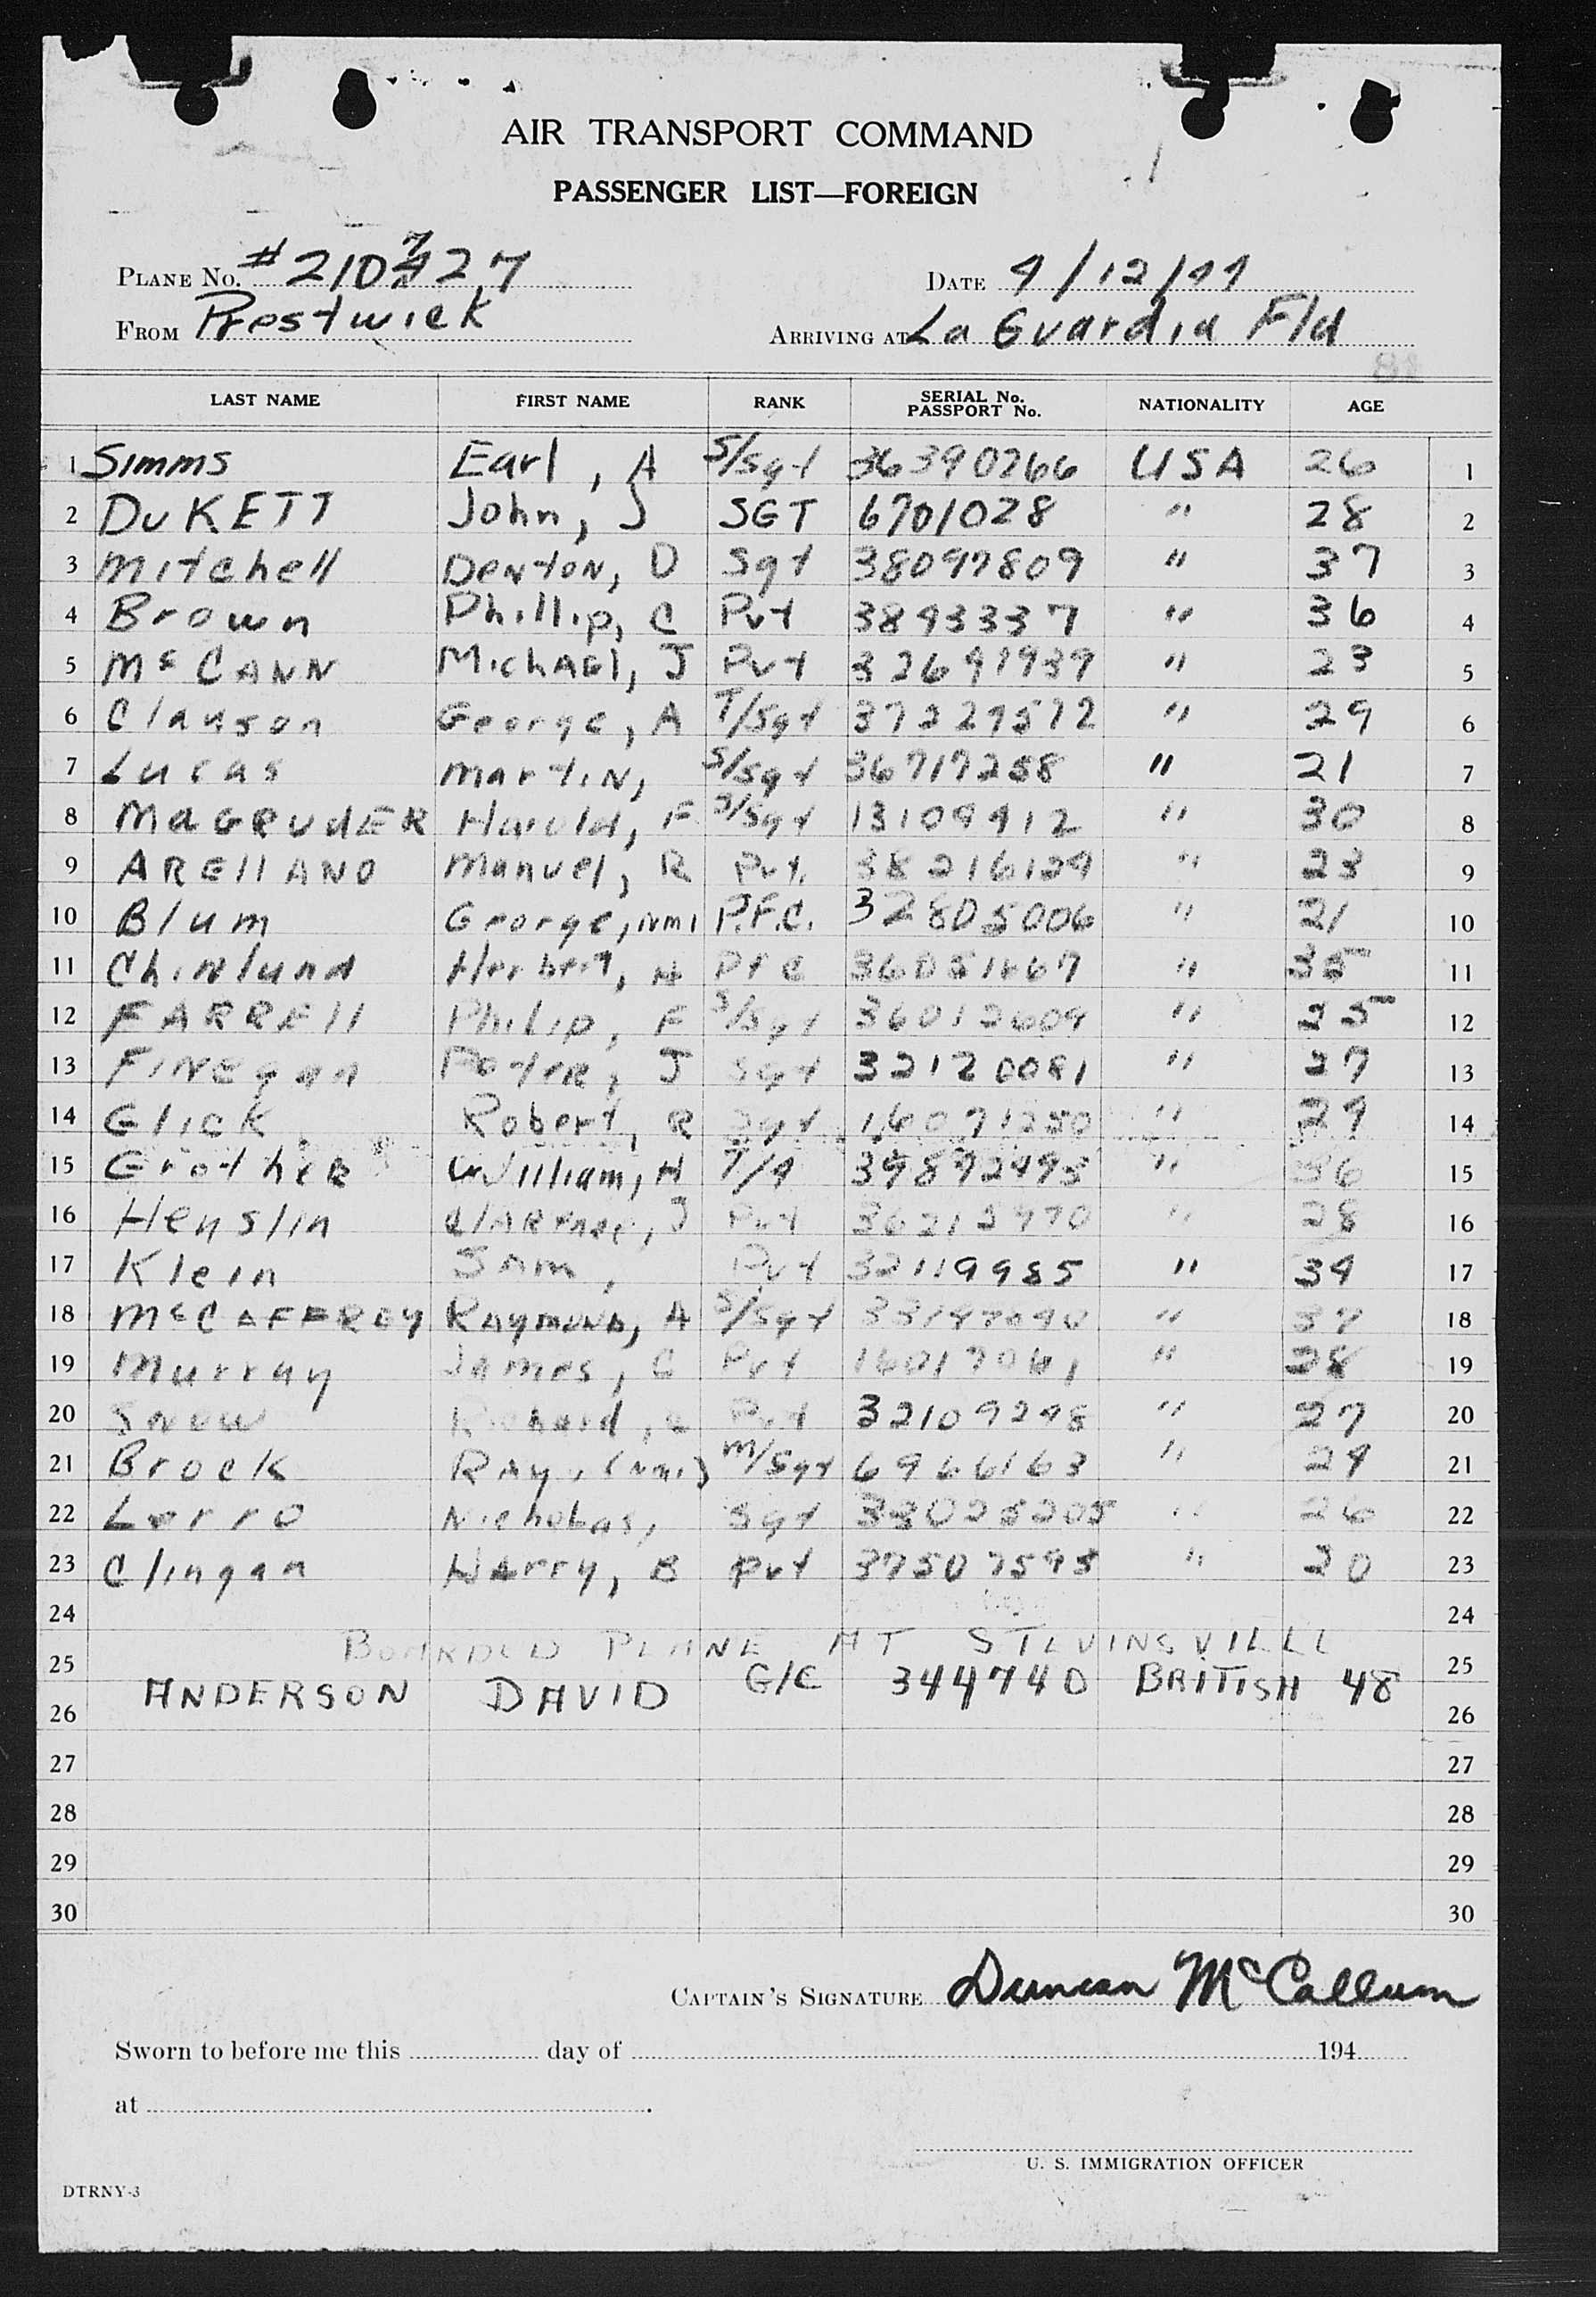 AIR TRANSPORT COMMAND
PASSENGER LIST—FOREIGN
PLANE No. #210727 DATE 4/12/44
FROM Prestwick ARRIVING AT La Guardia Fld
LAST NAME FIRST NAME RANK SERIAL No. PASSPORT No. NATIONALITY AGE
1 Simms Earl, A S/Sgt 36390266 USA 26 1
2 DuKETT John, J SGT 6701028 " 28 2
3 Mitchell Denton, D Sgt 38097809 " 37 3
4 Brown Phillip, C Pvt 38433337 " 36 4
5 McCANN MichAEl, J Pvt 32697939 " 23 5
6 Clauson George, A T/Sgt 37229572 " 29 6
7 Lucas Martin, S/Sgt 36717258 " 21 7
8 MaGRUdER Harold, F S/Sgt 13109412 " 30 8
9 AREllANO Manuel, R Pvt. 38216124 " 23 9
10 Blum George, NMI P.F.C. 32805006 " 21 10
11 Chinlund Herbert, H Pfc " 35 11
12 FARREll Philip, F S/Sgt 36012609 " 25 12
13 FINEgan PeteR, J Sgt 32120081 " 27 13
14 Glick Robert, R Sgt 16071250 " 29 14
15 GrotheR William, H T/4 39892493 " 36 15
16 Henslin ClARence, J Pvt 36212970 " 28 16
17 Klein SAm, Pvt 32119985 " 34 17
18 McCAFFREY RAymond, A S/Sgt " 37 18
19 Murray James, C Pvt " 28 19
20 Snow Richard, Pvt 32109298 " 27 20
21 Brock RAy, (NMI) M/Sgt 6966163 " 24 21
22 Lerro Nicholas, Sgt 33025205 " 26 22
23 Clingan HArry, B Pvt 37507593 " 20 23
24 24
BOARDED PLANE AT STEVINSVILLE
25 25
ANDERSON DAVID G/C 344740 BRITISH 48
26 26
27 27
28 28
29 29
30 30
CAPTAIN'S SIGNATURE Duncan McCallum
Sworn to before me this day of 194
at .
U. S. IMMIGRATION OFFICER
DTRNY-3